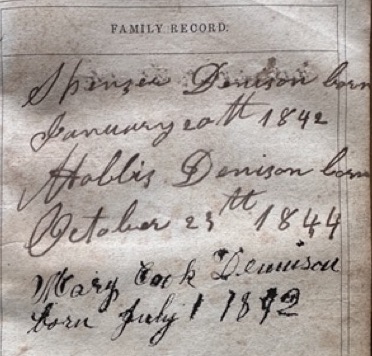 FAMILY RECORD.
Spenser Denison born
January 20th 1842
Hollis Denison born
October 23th 1844
Mary Cook Dennison
born July 1 1892